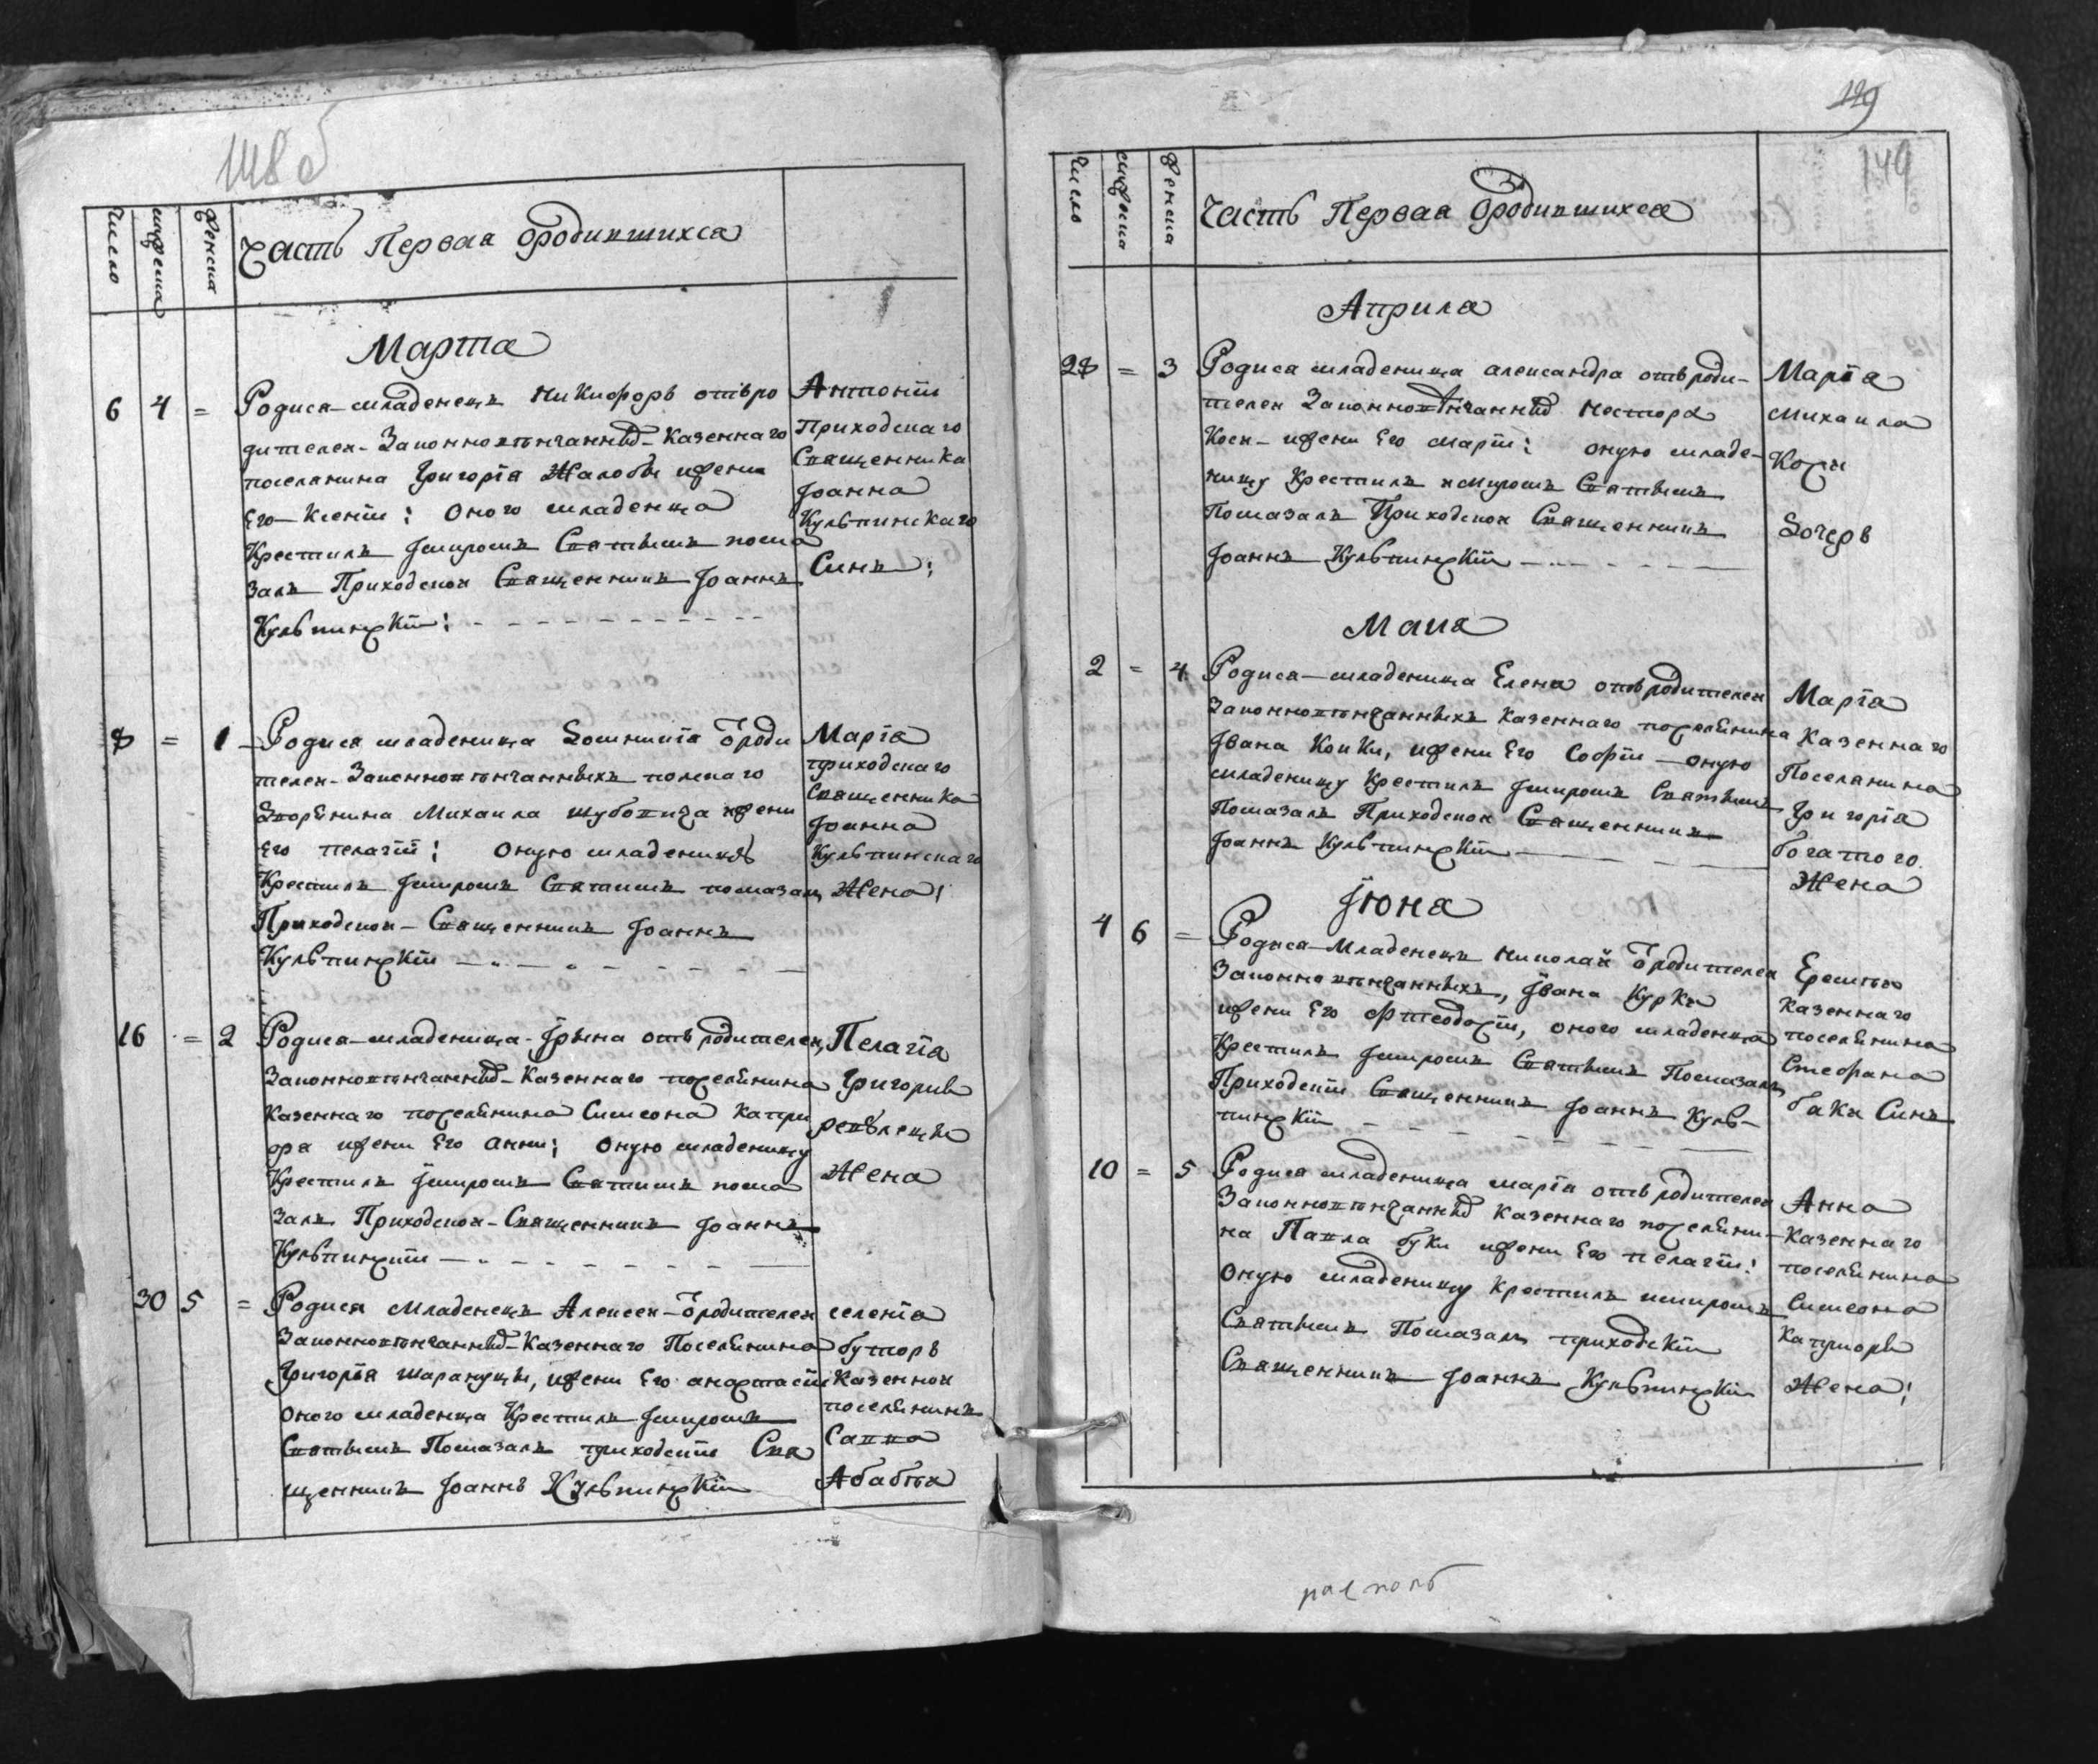 число
мужеска
женска
Часть Первая ѡродившихся
Марта
6 4 =
Родися младенецъ Никифоръ отъ ро
дителей Законновѣнчанныхъ Казеннаго
поселянина Григорія Жалобы и жени
Его Ксеніи: оного младенца
Крестилъ Јмиромъ Святымъ пома
залъ Приходской Священникъ Јоаннъ
Кульпинскій:
Антоній
Приходскаго
Священника
Јоанна
Кульпинскаго
Синъ;
8 = 1
Родися младеница Домникія ѿроди
телей Законновѣнчанныхъ полскаго
Дворѣнина Михаила Шубовича и жени
Его пелагіи; оную младеницу
Крестилъ Јмиромъ Святимъ помазалъ
Приходской Священникъ Јоаннъ
Кульпинскій
Марія
приходскаго
Священника
Јоанна
Кульпинскаго
Жена;
16 = 2
Родися младеница Ірина отъ родителей,
Законновѣнчаныхъ Казеннаго поселѣнина
казеннаго поселѣнина Симеона Катри
ора и жени Его Анни; оную младеницу
Крестилъ Јмиромъ Святимъ пома
залъ Приходской Священникъ Јоаннъ
Кульпинскій
Пелагія
Григорія
Жена
30 5 =
Родися Младенецъ Алексей ѿродителей
Законновѣнчаныхъ Казеннаго Поселѣнина
Григорія Шарануци, и жени Его анастасіи
оного младенца Крестилъ Јмиромъ
Святымъ Помазалъ приходскій Свя
щенникъ Јоаннъ Кульпинскій
Казенной
поселѣнинъ
Савва
129
149
число
мужеска
женска
Часть Первая ѡродившихся
Априла
28 = 3
Родися младеница александра отъ роди-
телей Законновѣнчанныхъ Нестора
и жени Его Маріи: оную младе-
ницу Крестилъ и Миромъ Святымъ
Помазалъ Приходской Священникъ
Јоаннъ Кульпинскій
Марія
Михаила
Дочерь
Маия
2 = 4
Родися младеница Елена отъ родителей
Законновѣнчанныхъ Казеннаго поселѣнина
Јвана Койки, и жени Его Софіи оную
младеницу Крестилъ Јмиромъ Святымъ
Помазалъ Приходской Священникъ
Јоаннъ Кульпинскій
Марія
Казеннаго
Поселянина
Григорія
богатого
Жена
Јюня
4 6 =
Родися Младенецъ Николай ѿродителей
Законновѣнчанныхъ, Јвана Курки
и жени Его Фтеодосіи, оного младенца
Крестилъ Јмиромъ Святымъ Помазалъ
Приходскій Священникъ Јоаннъ Куль-
пинскій
Казеннаго
поселѣнина
Стефана
баки Синъ
10 = 5
Родися младеница марія отъ родителей
Законновѣнчанныхъ Казеннаго поселѣни-
на Павла буки и жени Его пелагіи:
оную младеницу Крестилъ и миромъ
Святымъ Помазалъ приходскій
Священникъ Јоаннъ Кульпинскій
Анна
Казеннаго
поселѣнина
Симеона
Катриоры
Жена;